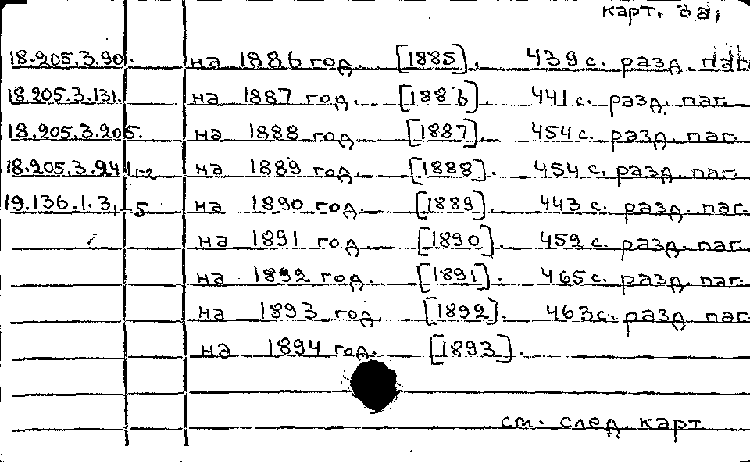 карт.
18.205.3.90. на 1886 год. [1885]. 439 с. разд. паг.
18.205.3.131. на 1887 год. [1886]. 441 с. разд. паг.
18.205.3.205. на 1888 год. [1887]. 454 с. разд. паг.
18.205.3.241-2 на 1889 год. [1888]. 454 с. разд. паг.
19.136.1.3,-5 на 1890 год. [1889]. 443 с. разд. паг.
на 1891 год. [1890]. 459 с. разд. паг.
на 1892 год. [1891]. 465 с. разд. паг.
на 1893 год. [1892]. 463 с. разд. паг.
на 1894 год. [1893].
см. след. карт.